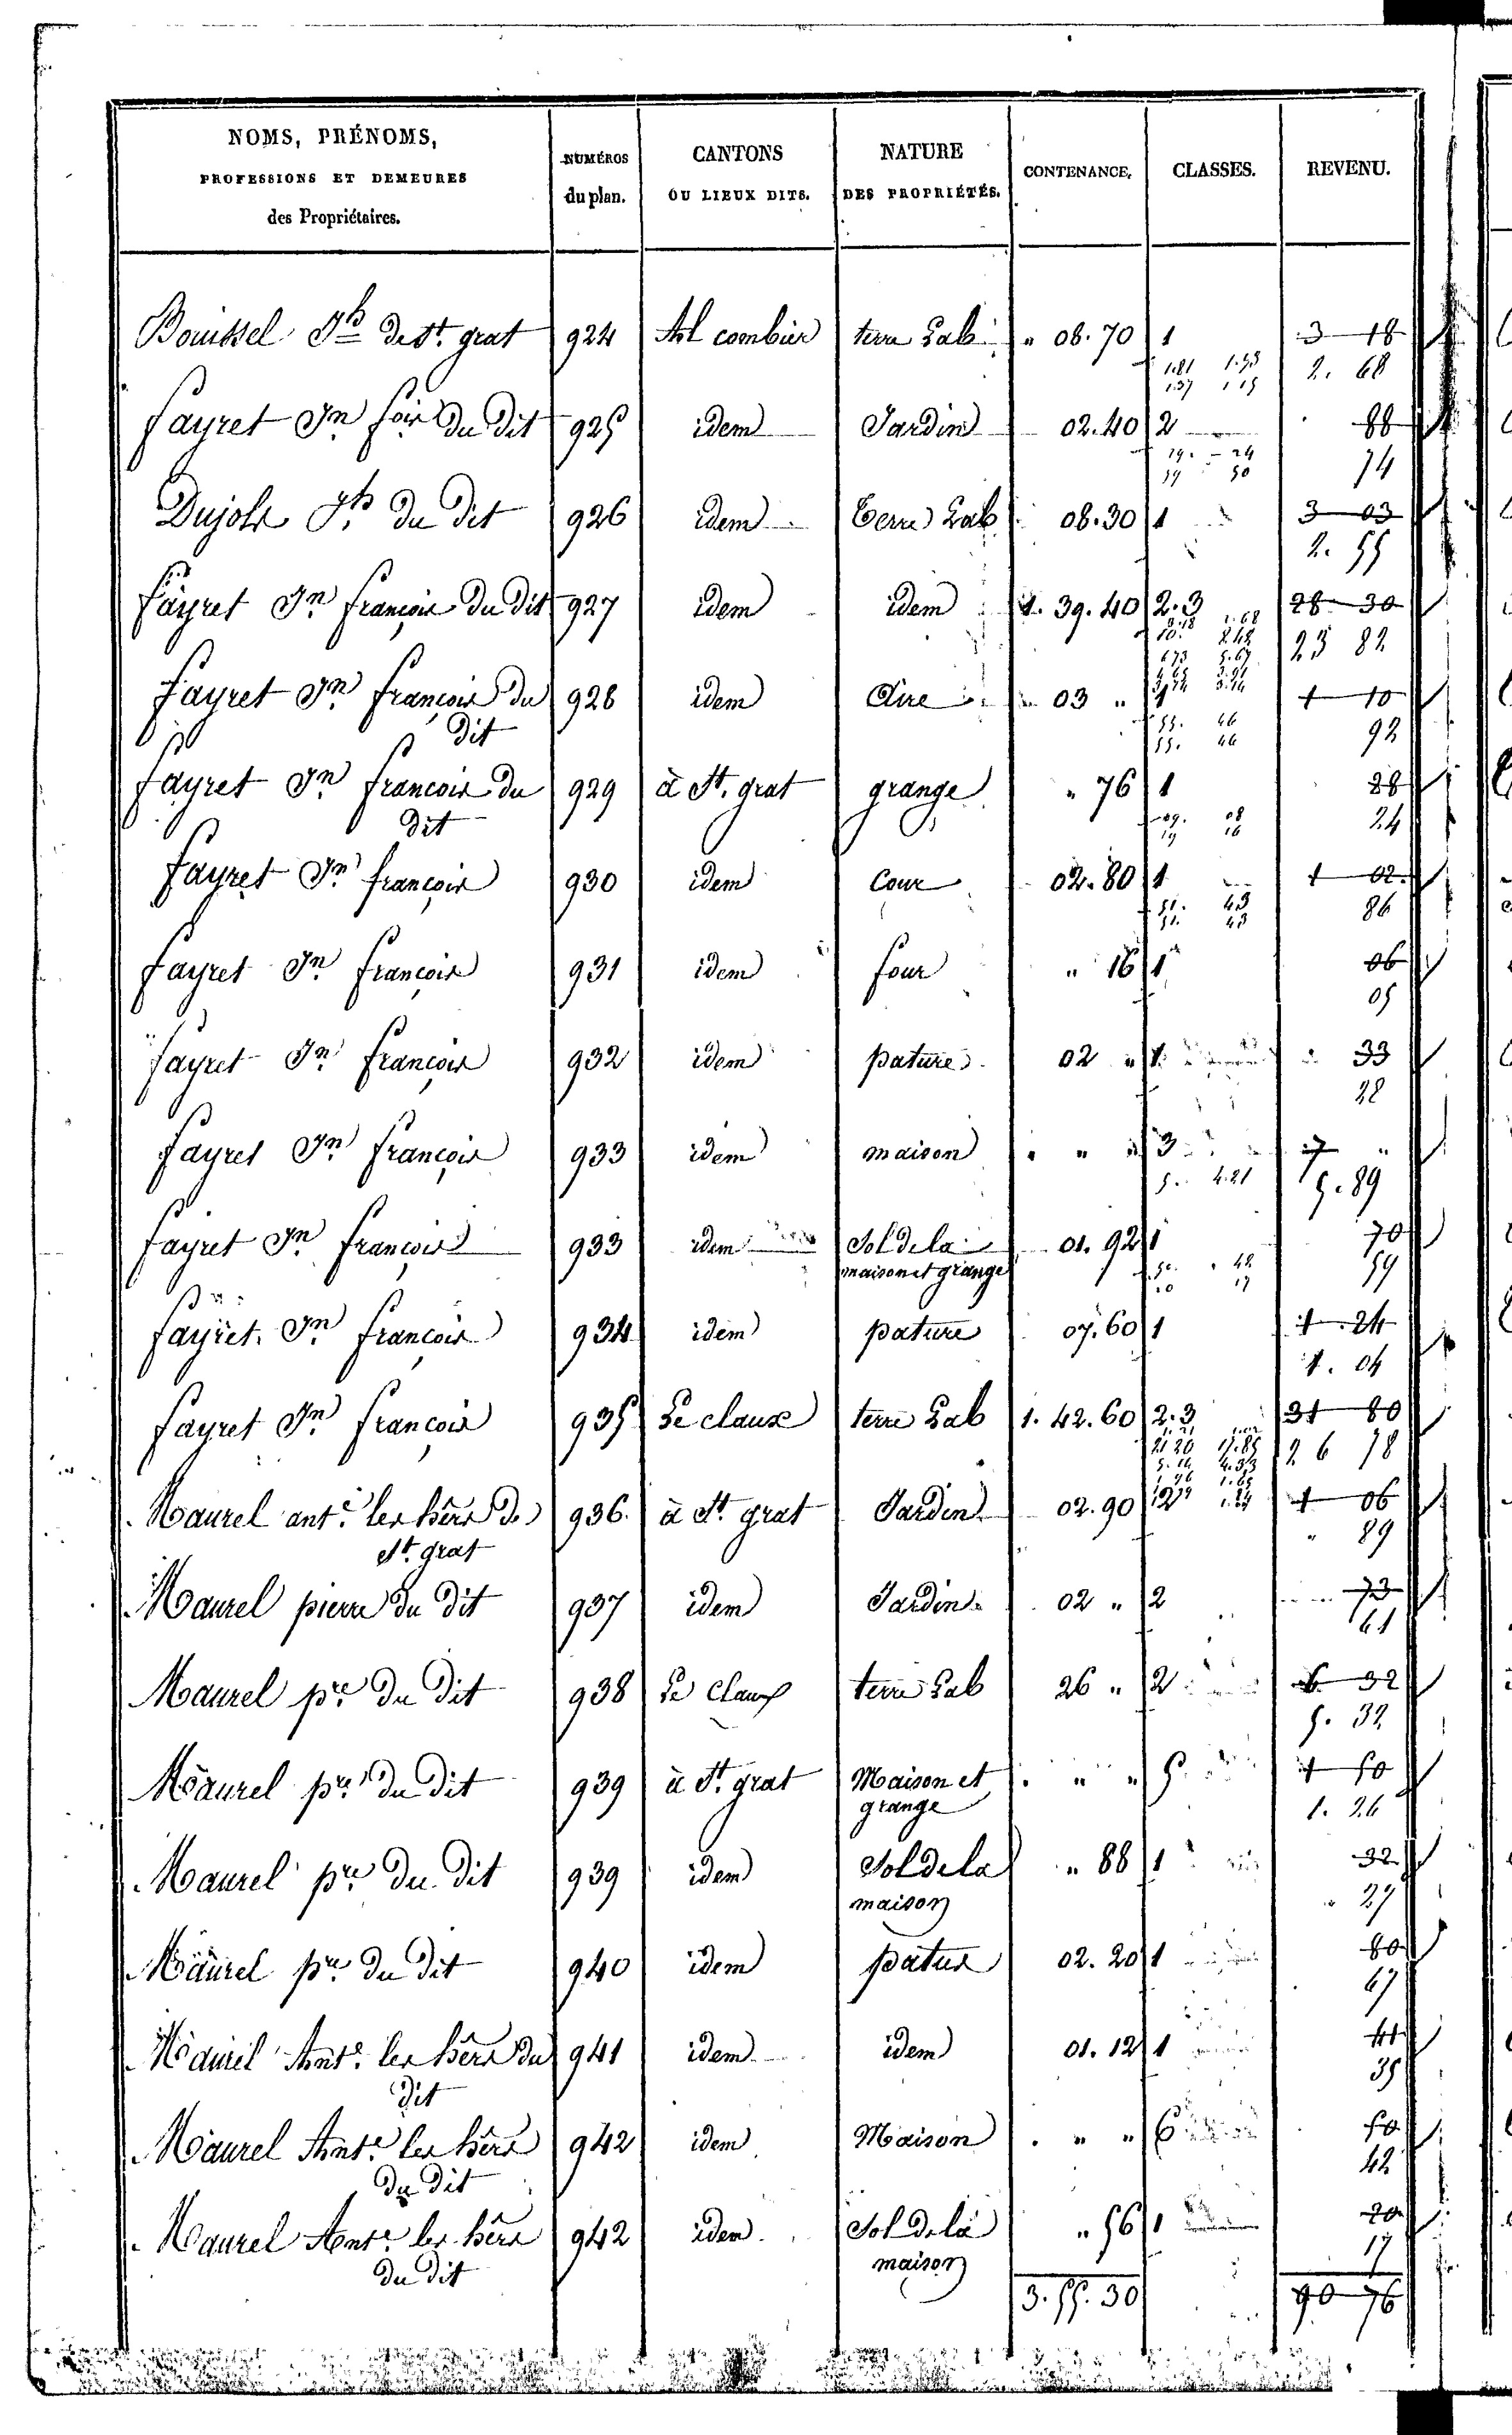 NOMS, PRÉNOMS, PROFESSIONS ET DEMEURES des Propriétaires. NUMÉROS du plan. CANTONS OU LIEUX DITS. NATURE DES PROPRIÉTÉS. CONTENANCE. CLASSES. REVENU.
Bouissel Jh de St. grat 924 terre Lab " 08. 70 1 3 18
1.81 2. 68
1.37
fayret Jn fois du dit 925 idem Jardin 02. 40 2 88
19. 24
59 50 74
Dujols Jh du dit 926 idem Terre Lab 08. 30 1 3 03
2. 55
fayret Jn françois du dit 927 idem idem 1. 39. 40 2. 3 28 30
23 82
6.73 5.67
fayret Jn françois du 928 idem Aire " 03 " 1 1 10
dit 55. 46 92
55. 46
fayret Jn françois du 929 à St. grat grange " 76 1 28
dit 09. 08 24
19 16
fayret Jn françois 930 idem Cour 02. 80 1 1 02
51. 43 86
51. 43
fayret Jn françois 931 idem four " 16 1 06
05
fayret Jn françois 932 idem pature 02 " 1 33
28
fayret Jn françois 933 idem maison " " " 3 7 "
5. 4.21 5. 89
fayret Jn françois 933 idem Sol de la 01. 92 1 70
maison et grange 50. 42 59
10 17
fayret Jn françois 934 idem pature 07. 60 1 1 24
1. 04
fayret Jn françois 935 Le claux terre Lab 1. 42. 60 2. 3 31 80
21 20 17.85 26 78
Maurel ante les hêrs de 936 à St. grat Jardin 02. 90 2 1 06
St. grat " 89
Maurel pierre du dit 937 idem Jardin 02 " 2 73
61
Maurel pre du dit 938 Le Claux terre Lab 26 " 2 6 32
5. 32
Maurel pre du dit 939 à St. grat Maison et " " " 5 1 50
grange 1. 26
Maurel pre du dit 939 idem Sol de la " 88 1 32
maison 27
Maurel pre du dit 940 idem patus 02. 20 1 80
67
Maurel Ante les hêrs du 941 idem idem 01. 12 1 41
dit 35
Maurel Ante les hêrs 942 idem Maison " " " 6 50
du dit 42
Maurel Ante les hêrs 942 idem Sol de la " 56 1 20
du dit maison 17
3. 55. 30 90 76